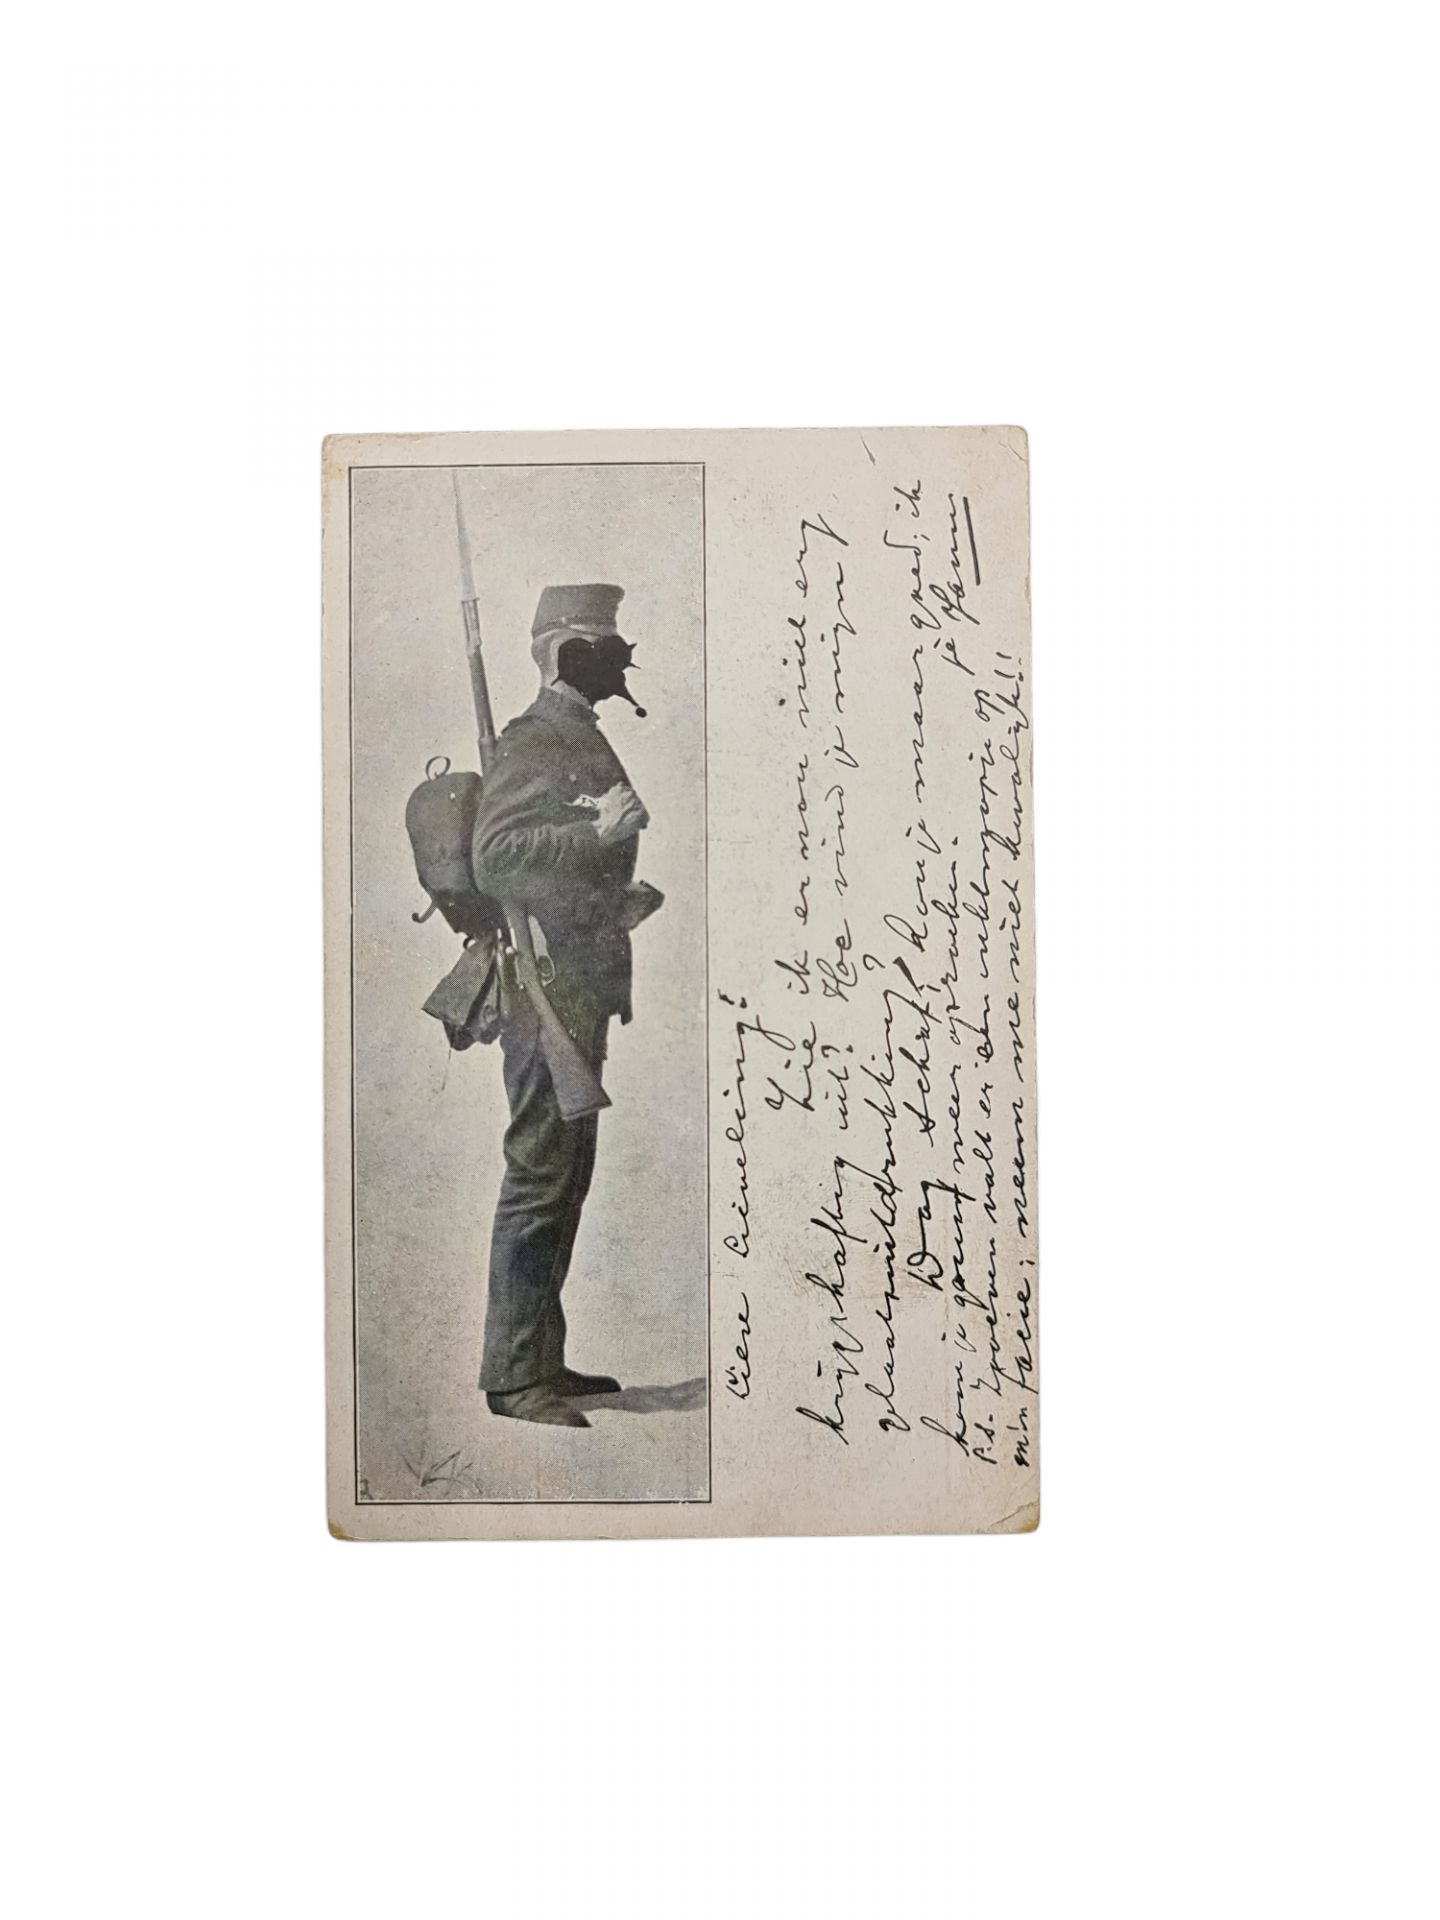 Lieve Lieveling!
Zie ik er nou niet erg
krijgshaftig uit? Hoe vind je mijn
gelaatsuitdrukking?
Dag schat! hou je maar goed; ik
kom je gauw weer opzoeken.
je Jann
P.S. Zoeven valt er een inktmopje op
m'n facie; neem me niet kwalijk!!